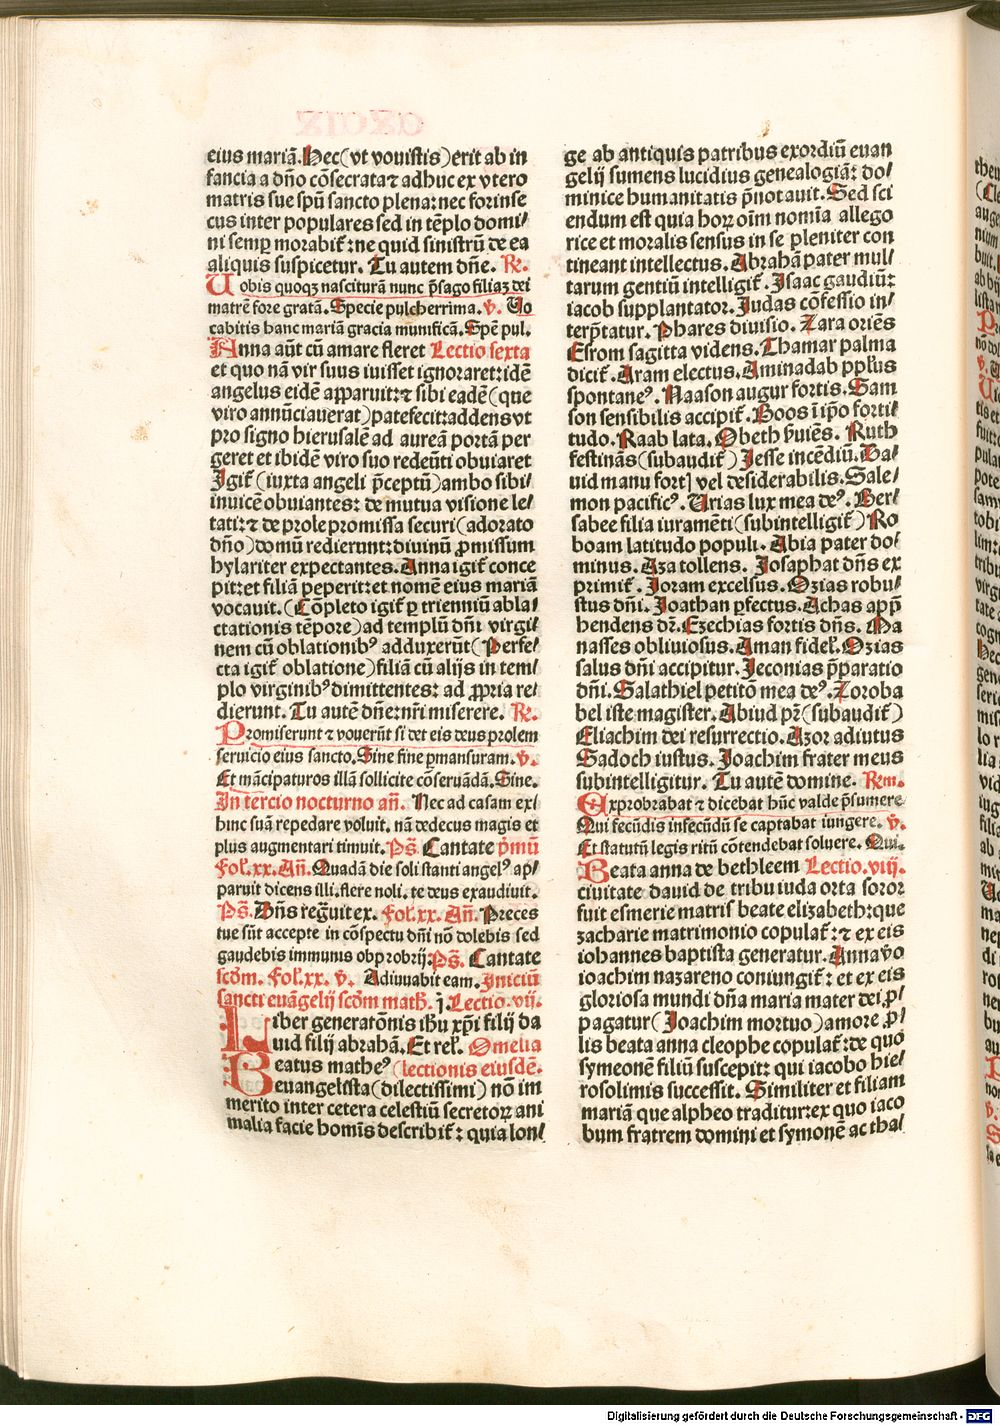 eius mariā. Hec (vt vouistis) erit ab in
fancia a dño cōsecrata ⁊ adhuc ex vtero
matris sue spū sancto plena: nec forinse
cus inter populares sed in tēplo domi/
ni semꝑ morabit̄: ne quid sinistrū de ea
aliquis suspicetur. Tu autem dñe. R̄.
Uobis quoqꝫ nasciturā nunc p̄sago filiaꝫ dei
matrē fore gratā. Specie pulcherrima. v̄. Uo
cabitis hanc mariā gracia munificā. Spē pul.
Anna aūt cū amare fleret Lectio sexta
et quo nā vir suus iuisset ignoraret: idē
angelus eidē apparuit: ⁊ sibi eadē (que
viro annūciauerat) patefecit: addens vt
pro signo hierusalē ad aureā portā per
geret et ibidē viro suo redeūti obuiaret
Igit̄ (iuxta angeli p̄ceptū) ambo sibi
inuicē obuiantes: de mutua visione le/
tati: ⁊ de prole promissa securi (adorato
dño) domū redierunt: diuinū ꝓmissum
hylariter expectantes. Anna igit̄ conce
pit: et filiā peperit: et nomē eius mariā
vocauit. (Cōpleto igit̄ ꝑ trienniū abla/
ctationis tēpore) ad templū dñi virgi/
nem cū oblationibꝰ adduxerūt (Perfe/
cta igit̄ oblatione) filiā cū alijs in tem/
plo virginibꝰ dimittentes: ad ꝓpria re/
dierunt. Tu autē dñe: nr̄i miserere. R̄.
Promiserunt ⁊ vouerūt si det eis deus prolem
seruicio eius sancto. Sine fine ꝑmansuram. v̄.
Et mācipaturos illā sollicite cōseruādā. Sine.
In tercio nocturno añ. Nec ad casam exi/
hinc suā repedare voluit. nā dedecus magis et
plus augmentari timuit. Pš. Cantate p̄mū
Fol̄. xx. Añ. Quadā die soli stanti angelꝰ ap/
paruit dicens illi. flere noli. te deus exaudiuit.
Pš. Dñs regūit ex. Fol̄. xx. Añ. Preces
tue sūt accepte in cōspectu dñi nō dolebis sed
gaudebis immunis obprobrij. Pš. Cantate
scdm̄. Fol̄. xx. v̄. Adiuuabit eam. Iniciū
sancti euāgelij scdm̄ math̄. j. Lectio. vij.
Liber generatōnis ihū xp̄i filij da
uid filij abrahā. Et rel̄. Omelia
Beatus matheꝰ (lectionis eiusdē.
euangelista (dilectissimi) nō im
merito inter cetera celestiū secretoꝝ ani
malia facie homīs describit̄: quia lon/
ge ab antiquis patribus exordiū euan
gelij sumens lucidius genealogiā: do/
minice humanitatis p̄notauit. Sed sci
endum est quia hoꝝ oīm nomīa allego
rice et moralis sensus in se pleniter con
tineant intellectus. Abrahā pater mul/
tarum gentiū intelligit̄. Isaac gaudiū:
iacob supplantator. Judas cōfessio in/
terp̄tatur. Phares diuisio. Zara oriēs
Esrom sagitta videns. Thamar palma
dicit̄. Aram electus. Aminadab pplūs
spontaneꝰ. Naason augur fortis. Sam
son sensibilis accipit̄. Boos ī ip̄o forti/
tudo. Raab lata. Obeth ẜuiēs. Ruth
festinās (subaudit̄) Jesse incēdiū. Da/
uid manu fort] vel desiderabilis. Sale/
mon pacificꝰ. Urias lux mea deꝰ. Ber/
sabee filia iuramēti (subintelligit̄) Ro
boam latitudo populi. Abia pater do/
minus. Aza tollens. Josaphat dñs ex
primit̄. Joram excelsus. Ozias robu/
stus dñi. Joathan ꝑfectus. Achas app̄
hendens dr̄. Ezechias fortis dñs. Ma
nasses obliuiosus. Aman fidel̄. Ozias
salus dñi accipitur. Jeconias p̄paratio
dñi. Salathiel petitō mea deꝰ. Zoroba
bel iste magister. Abiud pr̄ (subaudit̄)
Eliachim dei resurrectio. Azor adiutus
Sadoch iustus. Joachim frater meus
subintelligitur. Tu autē domine. R̄m.
Exprobrabat ⁊ dicebat hūc valde p̄sumere
Qui fecūdis infecūdū se captabat iungere. v̄.
Et statutū legis ritū cōtendebat soluere. Qui.
Beata anna de bethleem Lectio. viij.
ciuitate dauid de tribu iuda orta soror
fuit esmerie matris beate elizabeth: que
zacharie matrimonio copulat̄: ⁊ ex eis
iohannes baptista generatur. Anna vō
ioachim nazareno coniungit̄: et ex eis
gloriosa mundi dña maria mater dei ꝓ/
pagatur (Joachim mortuo) amore ꝓ/
lis beata anna cleophe copulat̄: de quo
symeonē filiū suscepit: qui iacobo hie/
rosolimis successit. Similiter et filiam
mariā que alpheo traditur: ex quo iaco
bum fratrem domini et symonē ac tha/
Digitalisierung gefördert durch die Deutsche Forschungsgemeinschaft - DFG